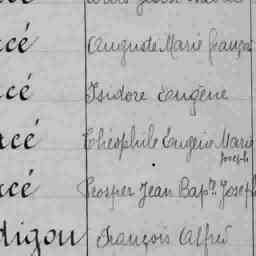 cé Auguste Marie françois
cé Isidore Eugène
cé Théophile Eugène Marie
Joseph
cé Prosper Jean Bapte Joseph
digou François Alfred